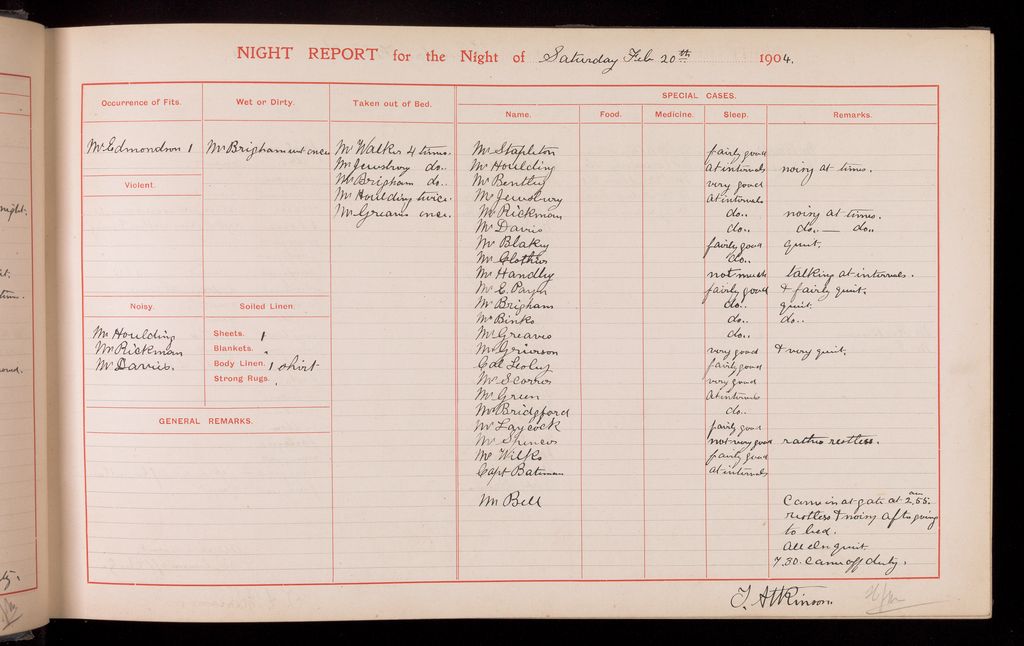 NIGHT REPORT for the Night of Saturday Feb 20th 1904.
Occurrence of Fits.
Wet or Dirty.
Taken out of Bed.
SPECIAL CASES.
Name. Food. Medicine. Sleep. Remarks.
Mr Edmondson 1
Mr Brigham wet once
Mr Walker 4 times.
Mr Jewsbury do..
Mr Brigham do..
Mr Houlding twice.
Mr Greaves once.
Violent.
Noisy.
Mr Houlding
Mr Rickman
Mr Davies.
Soiled Linen.
Sheets. 1
Blankets. "
Body Linen. 1 shirt
Strong Rugs. "
GENERAL REMARKS.
Mr Stapleton fairly good
Mr Houlding at intervals noisy at times.
Mr Bentley very good
Mr Jewsbury at intervals
Mr Rickman do.. noisy at times.
Mr Davis do.. do.. — do..
Mr Blakey fairly good quiet.
Mr Clothier do..
Mr Handley not much talking at intervals.
Mr E. Payn fairly good & fairly quiet.
Mr Brigham do.. quiet.
Mr Binks do.. do..
Mr Greaves do..
Mr Grierson very good & very quiet.
Col fairly good
Mr very good
Mr Green at intervals
Mr Bridgford do..
Mr Laycock fairly good
Mr Spencer not very good rather restless.
Mr Wilks fairly good
Capt Bateman at intervals
Mr Bell Came in at gate at 2.55. am
restless & noisy after going
to bed.
All else quiet
7.30. Came off duty.
T. Atkinson.
night.